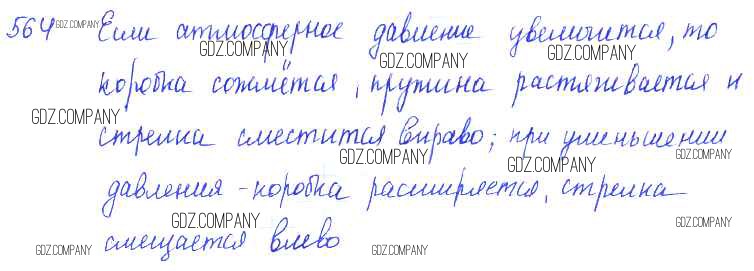 564 GDZ.COMPANY Если атмосферное давление увеличится, то
GDZ.COMPANY GDZ.COMPANY GDZ.COMPANY
коробка сожмётся, пружина растягивается и
GDZ.COMPANY GDZ.COMPANY
стрелка сместится вправо; при уменьшении
GDZ.COMPANY GDZ.COMPANY GDZ.COMPANY
давления - коробка расширяется, стрелка
GDZ.COMPANY GDZ.COMPANY
смещается влево
GDZ.COMPANY GDZ.COMPANY